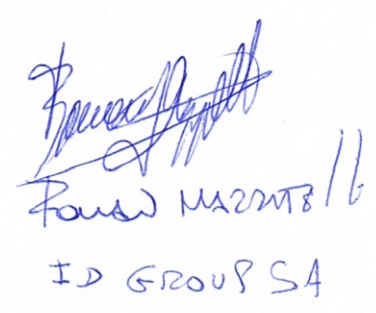 Roman MAZZITELLI
ID GROUP SA